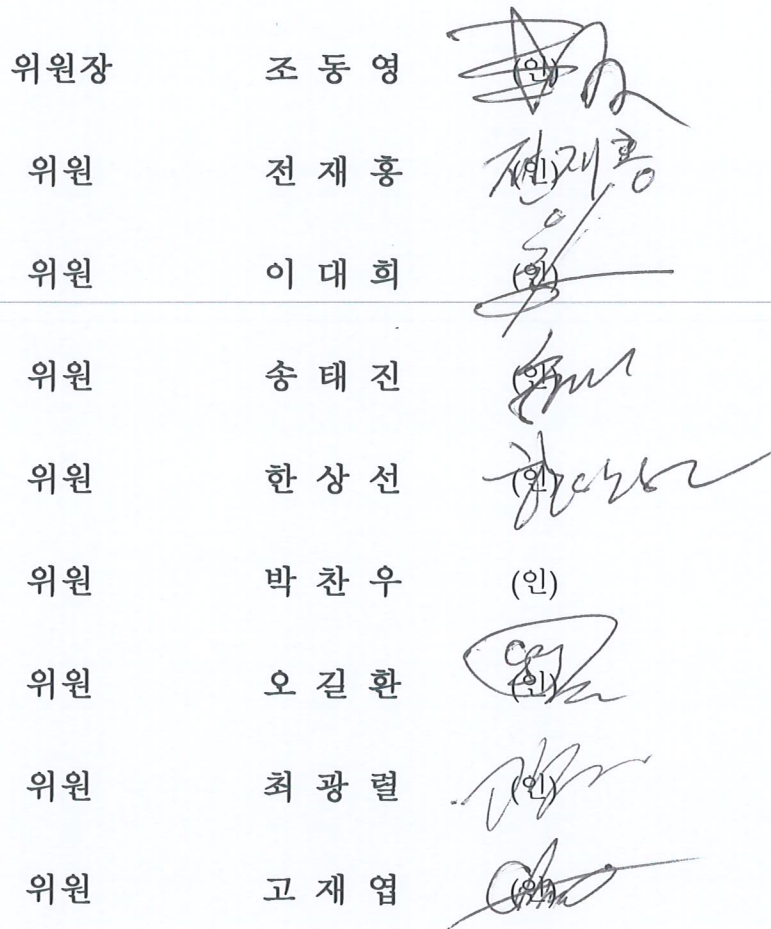 위원장 조 동 영 (인)
위원 전 재 홍 (인) 전재홍
위원 이 대 희 (인)
위원 송 태 진 (인)
위원 한 상 선 (인)
위원 박 찬 우 (인)
위원 오 길 환 (인)
위원 최 광 렬 (인)
위원 고 재 엽 (인)